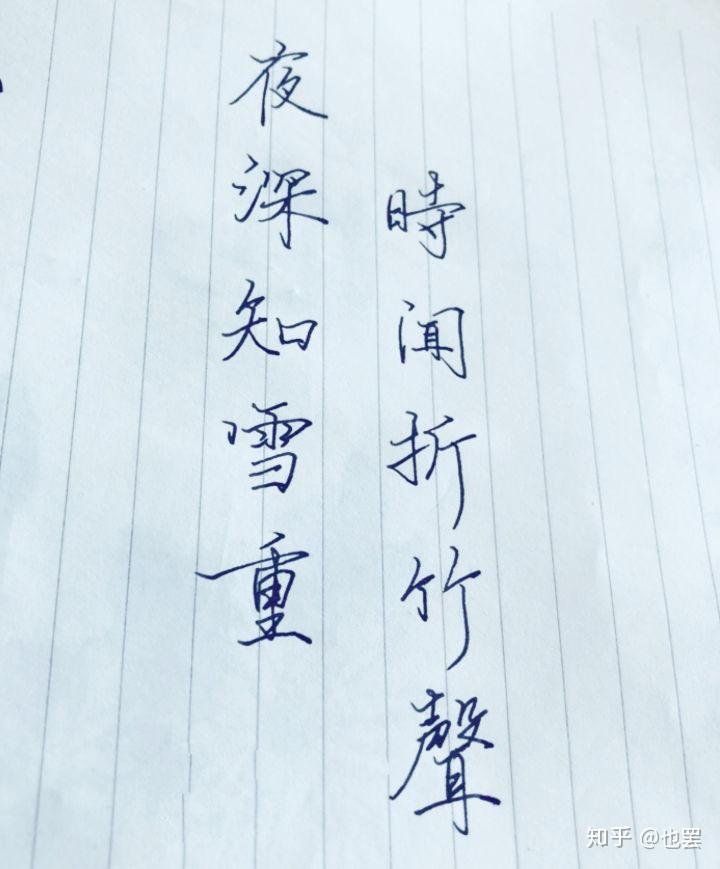 夜深知雪重
時闻折竹聲
知乎 @也罢